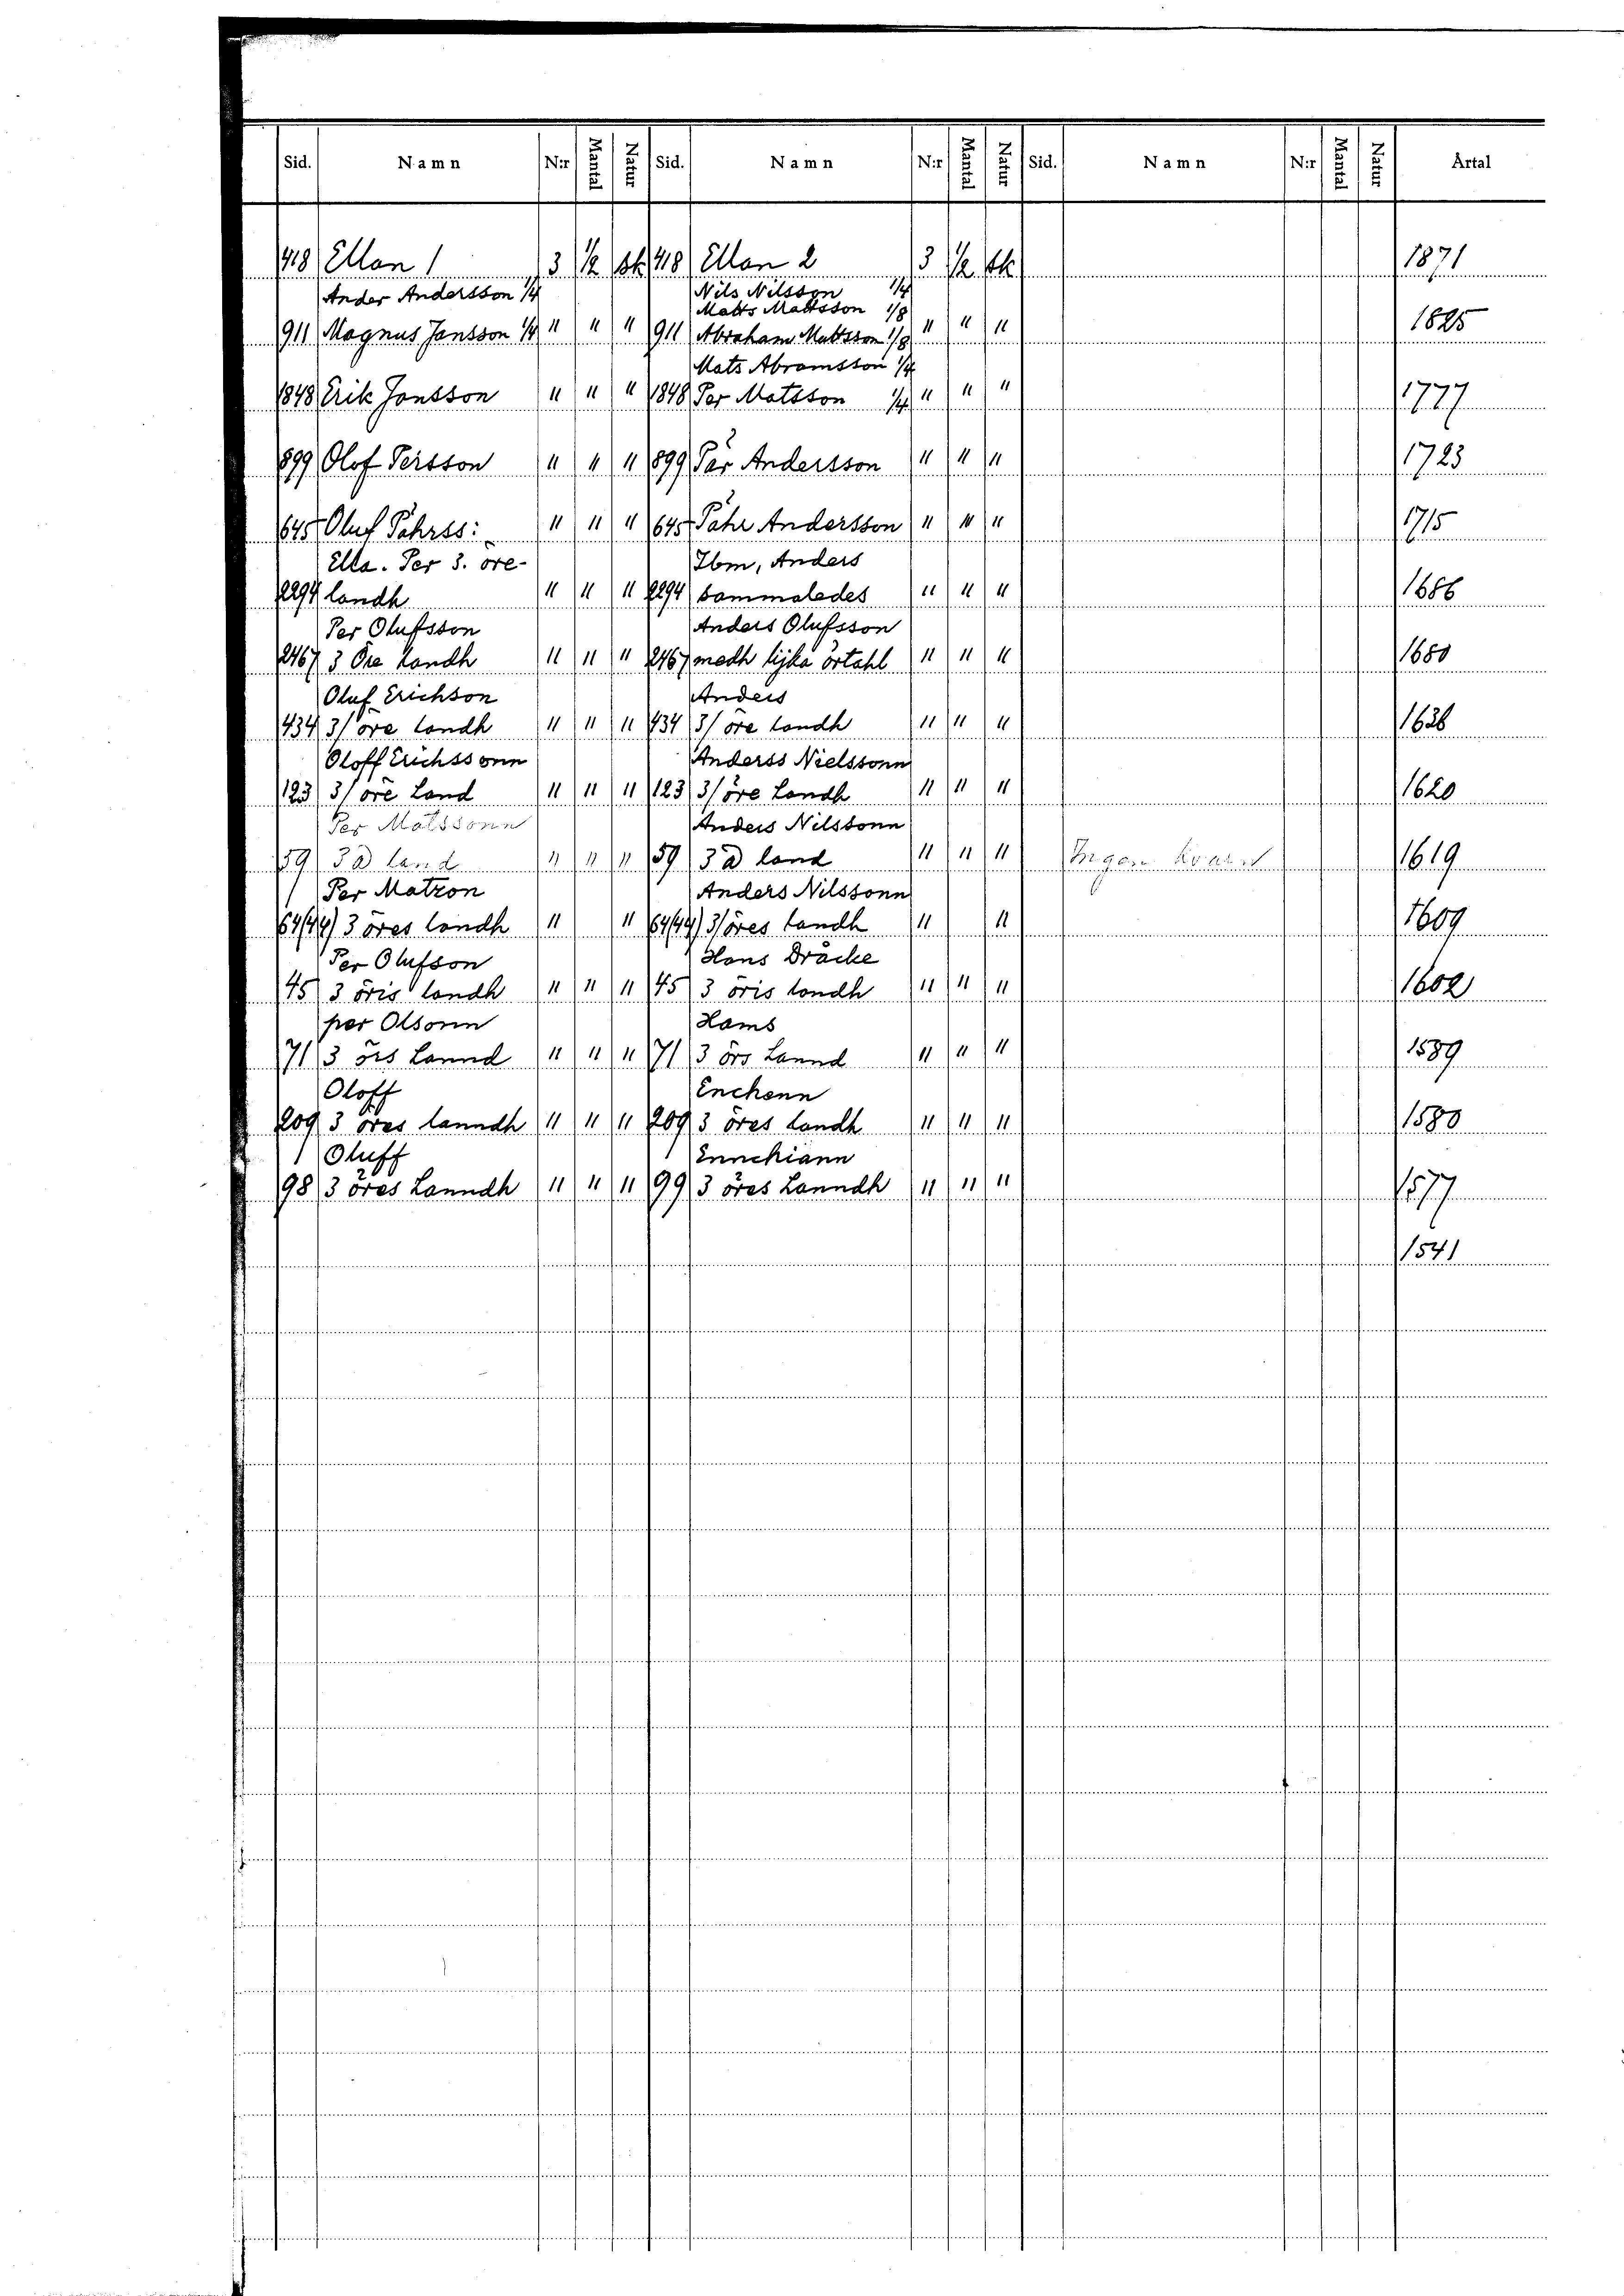 Sid. Namn N:r Mantal Natur Sid. Namn N:r Mantal Natur Sid. Namn N:r Mantal Natur Årtal
418 Ellan 1 3 1/2 sk 418 Ellan 2 3 1/2 sk 1871
Ander Andersson 1/4 Nils Nilsson 1/4
Matts Mattsson 1/8
911 Magnus Jansson 1/4 " " " 911 Abraham Mattsson 1/8 " " " 1825
Mats Abramsson 1/4
1848 Erik Jonsson " " " 1848 Per Matsson 1/4 " " " 1777
899 Olof Persson " " " 899 Pär Andersson " " " 1723
645 Oluf Pährss: " " " 645 Pähr Andersson " " " 1715
Ella. Per 3. öre- Ibm, Anders
2294 landh " " " 2294 sammaledes " " " 1686
Per Olufsson Anders Olufsson
2467 3 Öre Landh " " " 2467 medh lijka örtahl " " " 1680
Oluf Erichson Anders
434 3/ öre landh " " " 434 3/ öre landh " " " 1636
Oloff Erichssonn Anderss Nielssonn
123 3/ öre Land " " " 123 3/ öre Landh " " " 1620
Per Matssonn Anders Nilssonn
59 3 land " " " 59 3 land " " " Ingen kvarn 1619
Per Matzon Anders Nilssonn
64(44) 3 öres landh " " 64(44) 3/öres landh " " 1609
Per Olufson Hans Dräcke
45 3 öris landh " " " 45 3 öris landh " " " 1602
per Olsonn Hams
71 3 örs Lannd " " " 71 3 örs Lannd " " " 1589
Oloff Enchenn
209 3 öres lanndh " " " 209 3 öres landh " " " 1580
Oluff Ennckiann
98 3 öres Lanndh " " " 99 3 öres Lanndh " " " 1577
1541